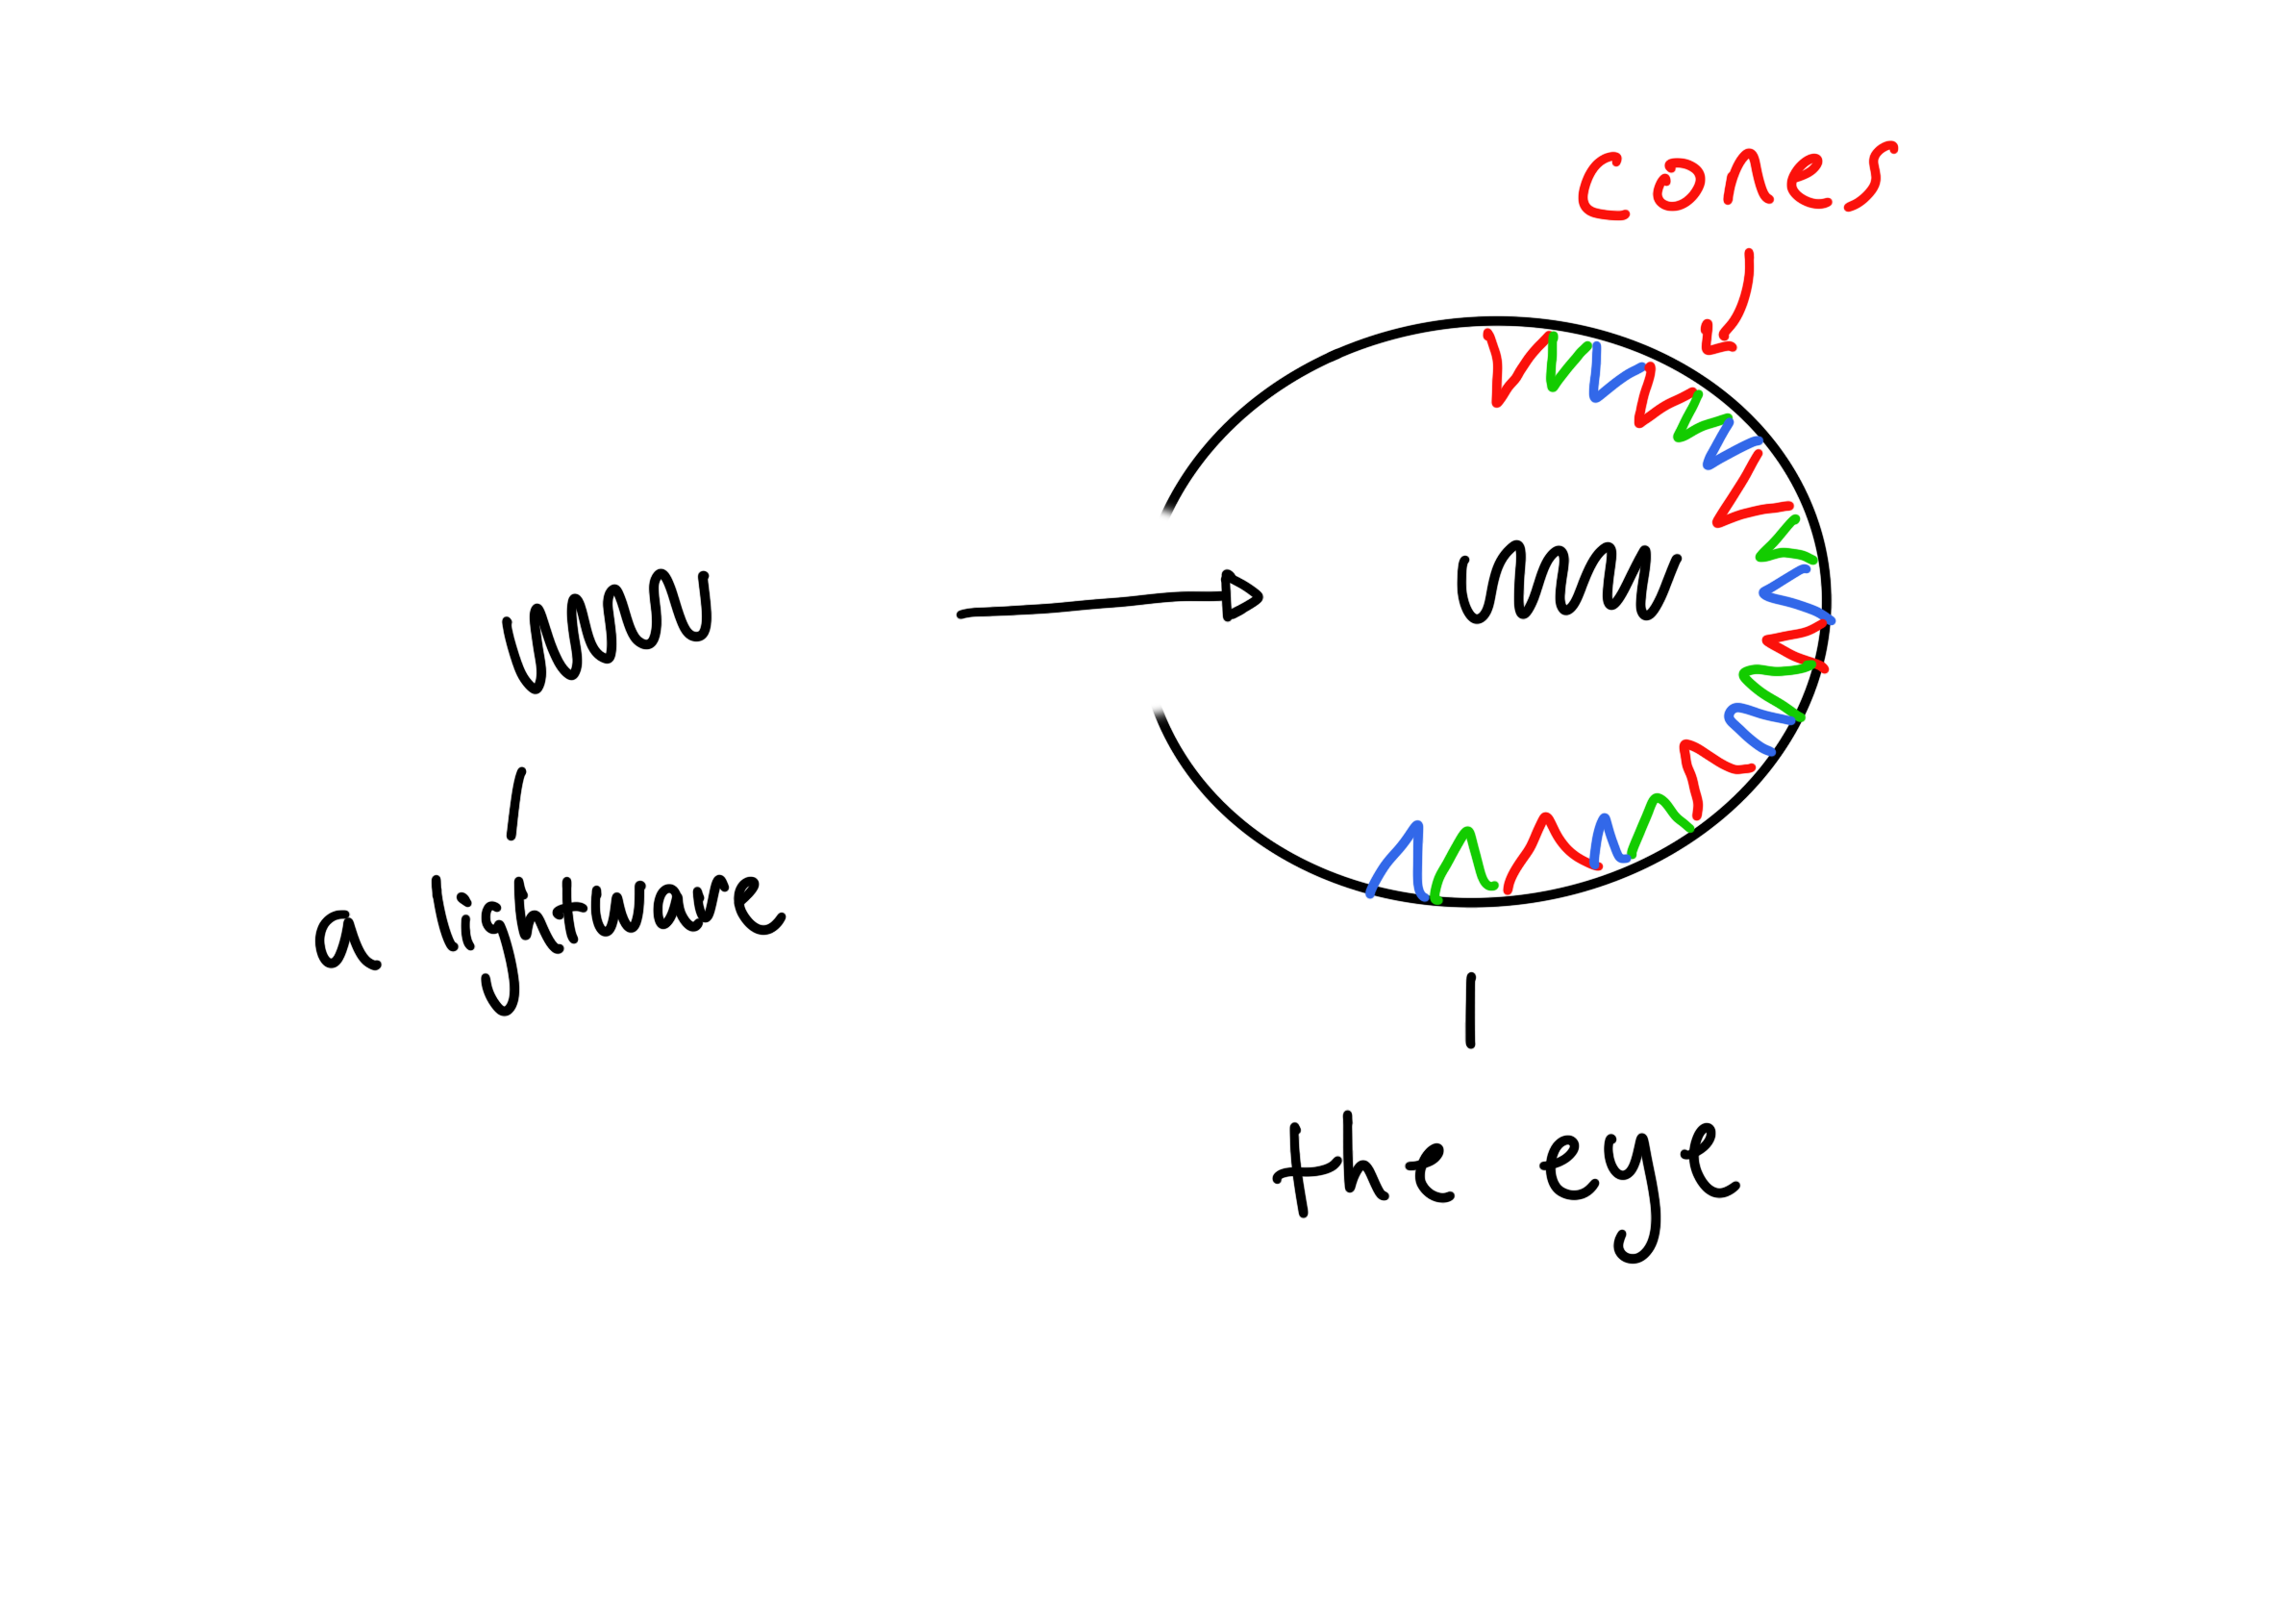 cones
a lightwave
the eye